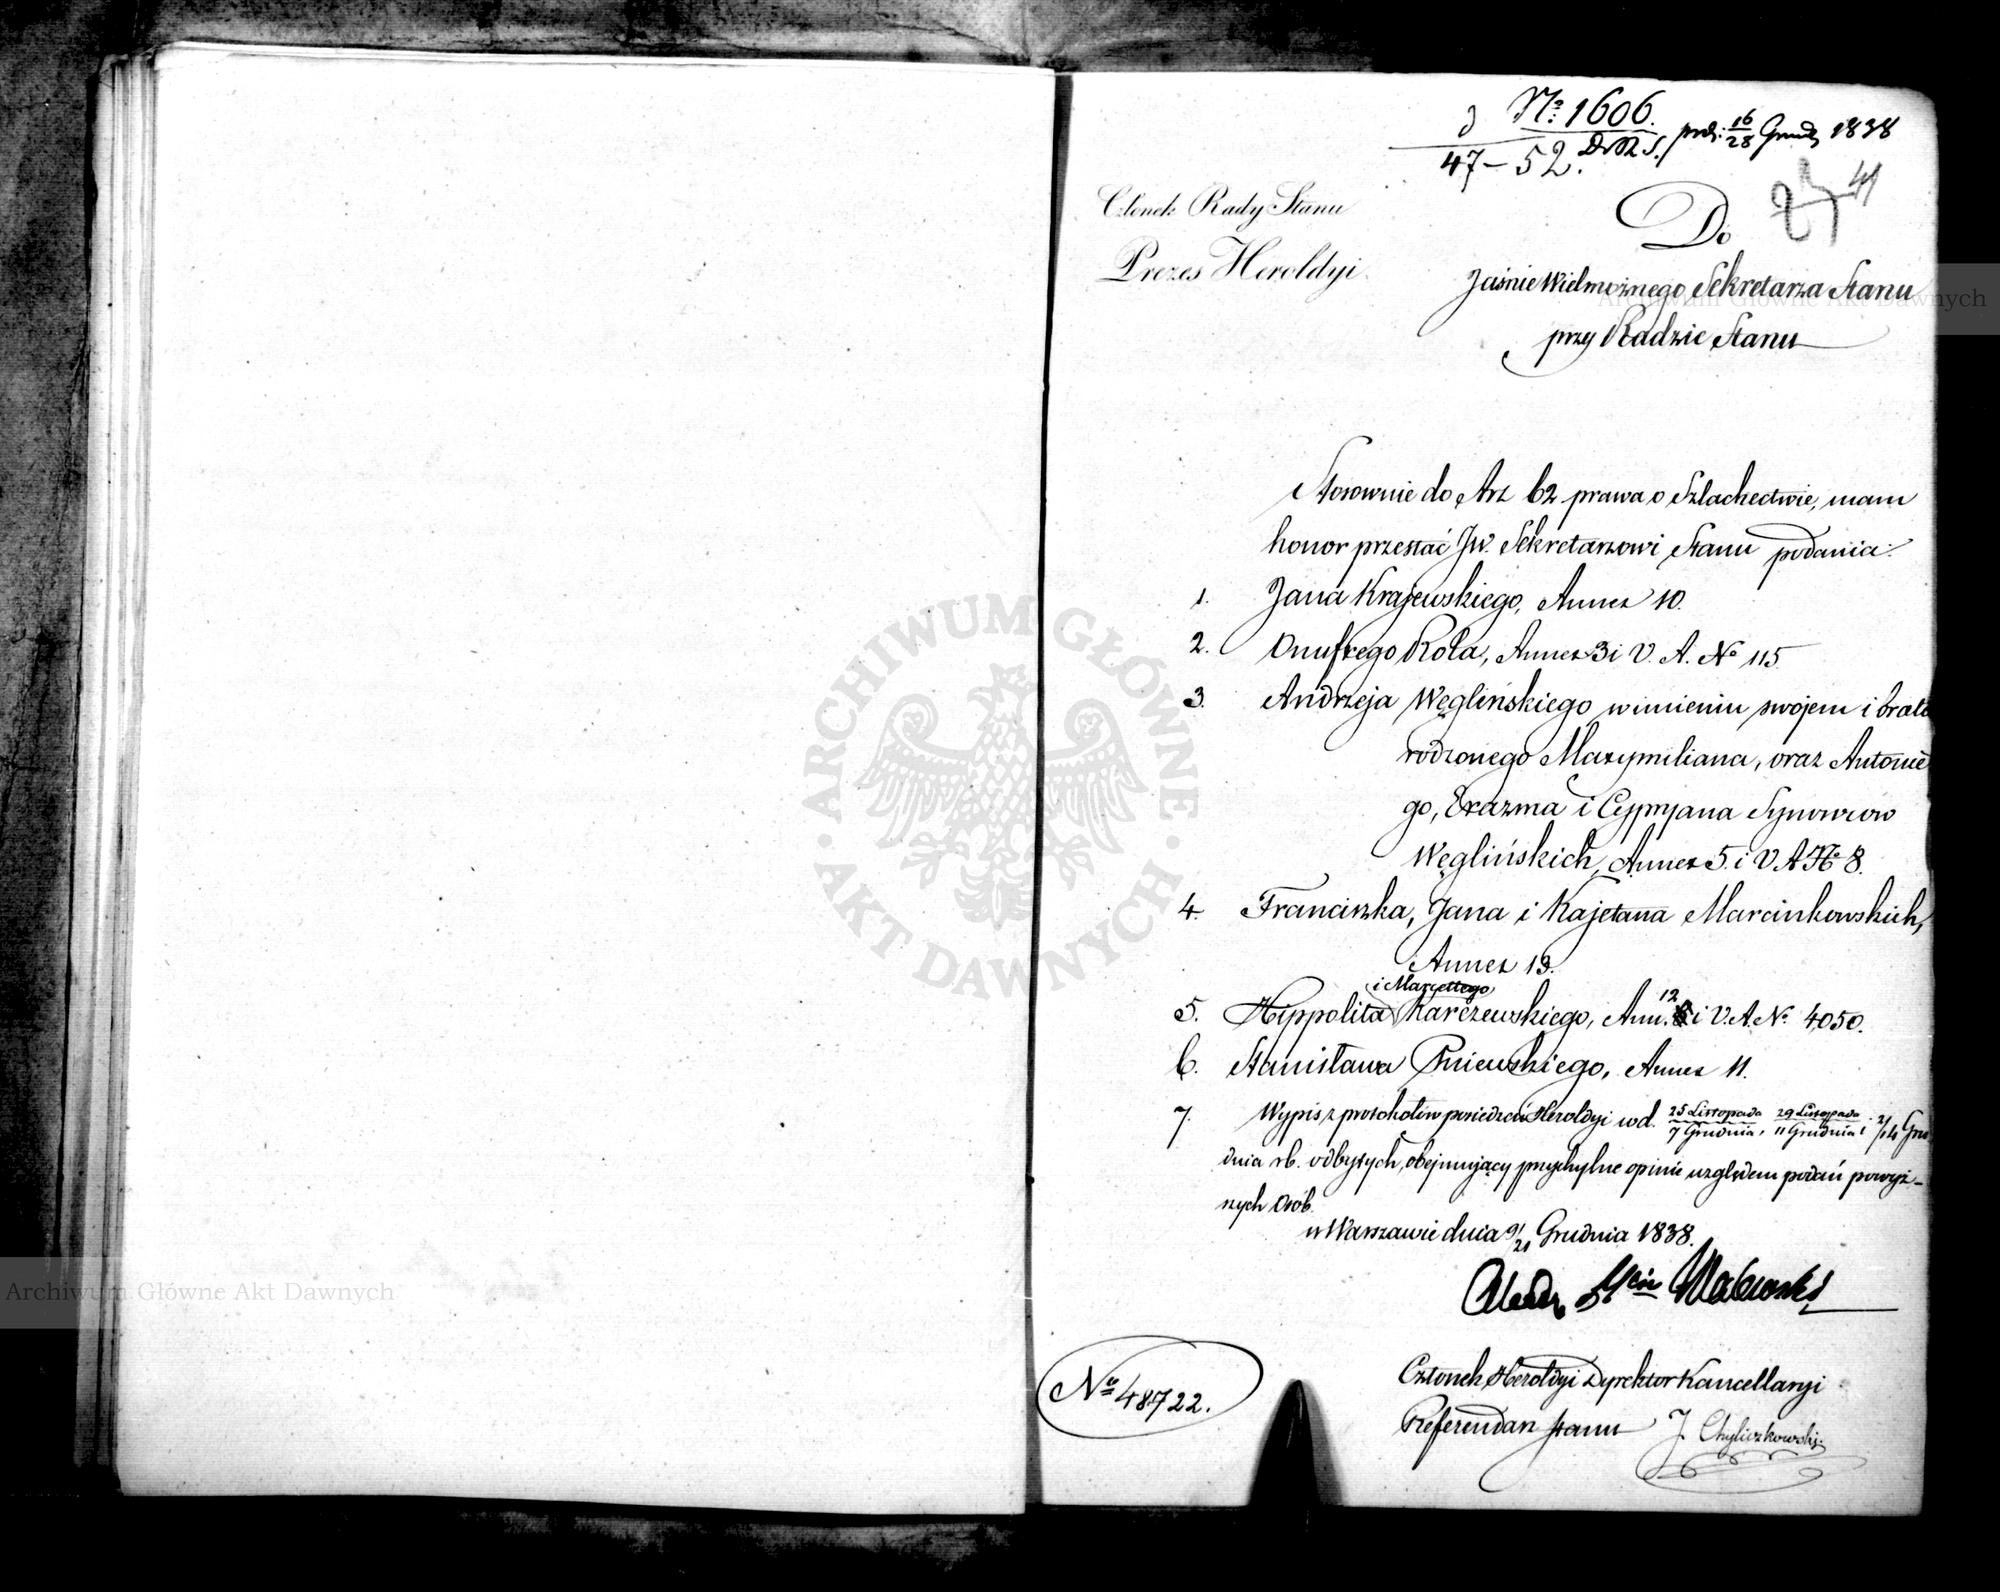 № 1606.
D.R.S. pod: 16/28 Grud. 1838
47-52.
41
Członek Rady Stanu
Prezes Heroldyi
Do
Jaśnie Wielmożnego Sekretarza Stanu
przy Radzie Stanu
Stosownie do Art 62 prawa o Szlachectwie, mam
honor przesłać JW. Sekretarzowi Stanu podania:
1. Jana Krajewskiego, Annex 10.
2. Onufrego Rola, Annex 3 i V. A. № 115
3. Andrzeja Węglińskiego w imieniu swojem i brata
rodzonego Maxymiliana, oraz Antonie
go, Erazma i Cypryana Synowców
Węglińskich, Annex 5. i V. A № 8.
4. Franciszka, Jana i Kajetana Marcinkowskich,
Annex 13.
i Marcellego
5. Hippolita Karczewskiego, Ann. 12 i V. A. № 4050.
6. Stanisława Pniewskiego, Annex 11.
7. Wypis z protokołów posiedzeń Heroldyi w d. 25 Listopada/7 Grudnia, 29 Listopada/11 Grudnia i 2/14 Gru
dnia rb. odbytych, obejmujący przychylne opinie względem podań powyż-
szych osób.
w Warszawie dnia 9/21 Grudnia 1838.
Członek Heroldyi Dyrektor Kancellaryi
Referendarz Stanu J. Chyliczkowski
№ 48722.
Archiwum Główne Akt Dawnych
Archiwum Główne Akt Dawnych
ARCHIWUM GŁÓWNE
AKT DAWNYCH